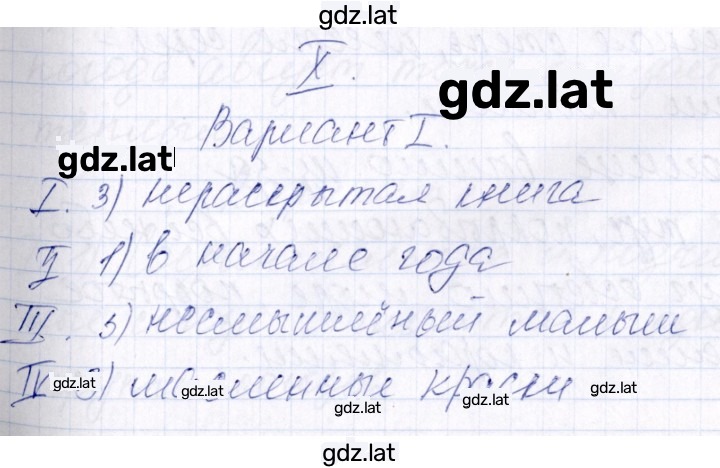 gdz.lat
X.
gdz.lat
Вариант I.
gdz.lat
I. 3) нераскрытая книга
II 1) в начале года
III. 3) несмышлёный малыш
IV gdz.lat ) масленные краски
gdz.lat gdz.lat gdz.lat gdz.lat
gdz.lat